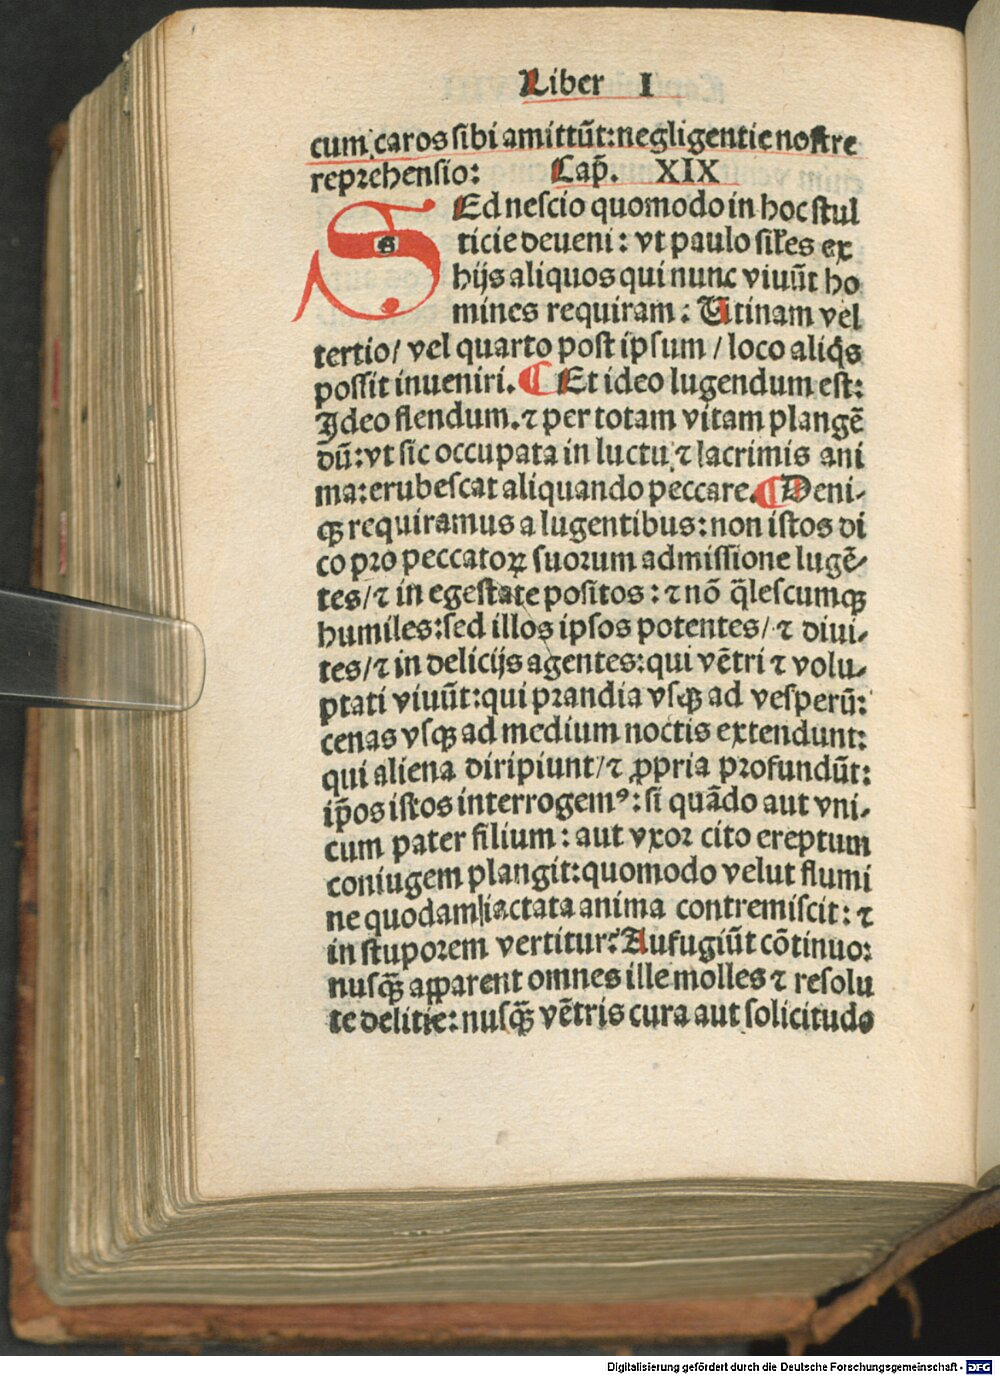 Liber I
cum caros sibi amittūt: negligentie nostre
reprehensio: Cap̄. XIX
SEd nescio quomodo in hoc stul
ticie deueni: vt paulo siłes ex
hijs aliquos qui nunc viuūt ho
mines requiram: Utinam vel
tertio/ vel quarto post ipsum / loco aliq̇s
possit inueniri. ¶ Et ideo lugendum est:
Ideo flendum. ⁊ per totam vitam plangē
dū: vt sic occupata in luctu ⁊ lacrimis ani
ma: erubescat aliquando peccare. ¶ Deni⸗
qꝫ requiramus a lugentibus: non istos di
co pro peccatoꝝ suorum admissione lugē⸗
tes/ ⁊ in egestate positos: ⁊ nō q̄lescumqꝫ
humiles: sed illos ipsos potentes/ ⁊ diui⸗
tes/ ⁊ in delicijs agentes: qui vētri ⁊ volu⸗
ptati viuūt: qui prandia vsqꝫ ad vesperū:
cenas vsqꝫ ad medium noctis extendunt:
qui aliena diripiunt/ ⁊ ꝓpria profundūt:
ip̄os istos interrogemꝰ: si quādo aut vni⸗
cum pater filium: aut vxor cito ereptum
coniugem plangit: quomodo velut flumi
ne quodam iactata anima contremiscit: ⁊
in stuporem vertitur? Aufugiūt cōtinuo:
nusqꝫ̄ apparent omnes ille molles ⁊ resolu
te delitie: nusqꝫ̄ vētris cura aut solicitudo
Digitalisierung gefördert durch die Deutsche Forschungsgemeinschaft - DFG